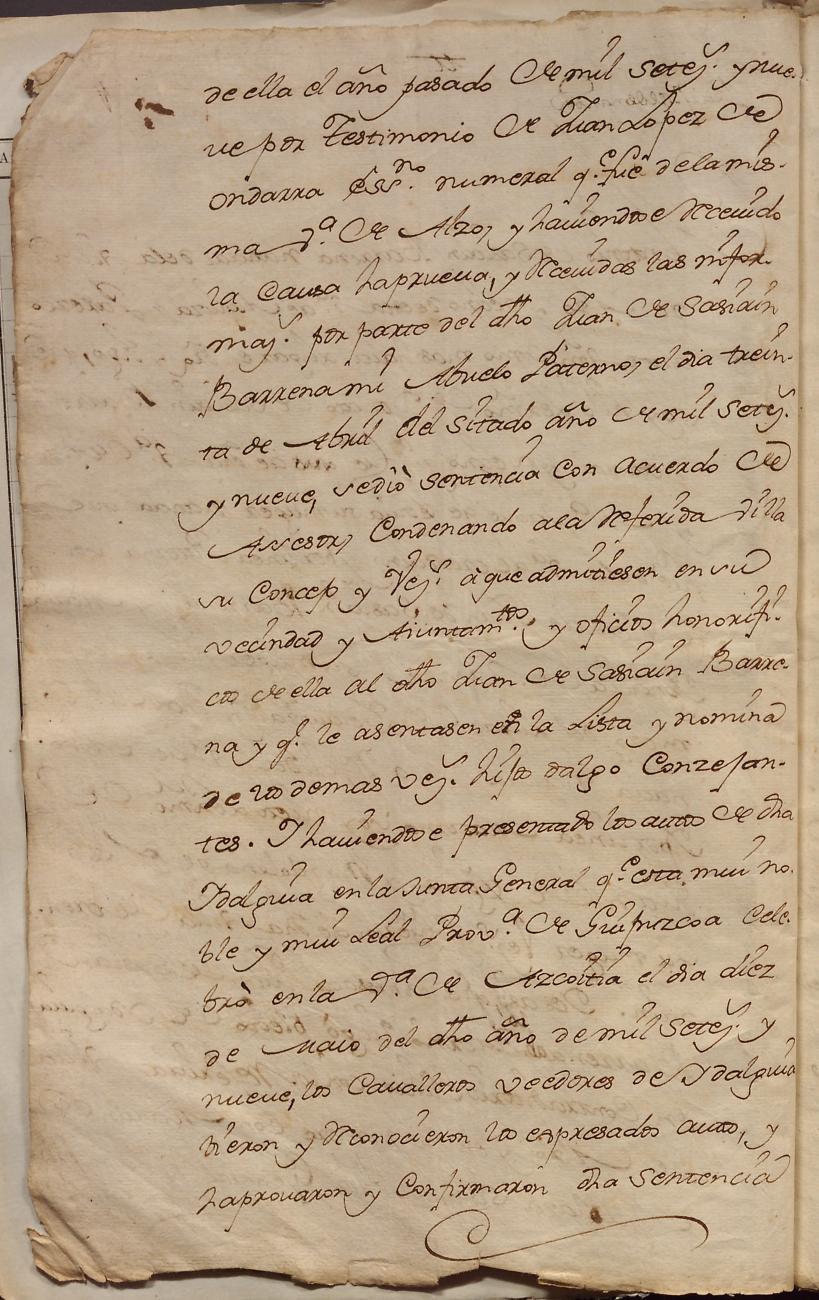 de ella el año pasado de mil setez.^s y nue-
ve por Testimonio de Juan Lopez de
ondarra Ess.^no numeral q.^e fue de la mis-
ma V.^a de Alzo, y haviendose Recevido
la Causa haprueva, y Recevidas las infor-
maz.^s por parte del dho Juan de Sasiain
Barrena mi Abuelo Paterno, el dia trein-
ta de Abril del Sitado año de mil setez.^s
y nueve, se diò sentencia con acuerdo de
Asesor, Condenando ala Referida Villa
su Concejo y Vez.^s à que admitiesen en su
vecindad y Aiuntam.^tos y oficios honorifi-
cos de ella al dho Juan de Sasiain Barre-
na y q.^e le asentasen en la Lista y nomina
de los demas vez.^s hijos dalgo Conzejan-
tes. I haviendose presentado los autos de dha
Idalguia en la Junta General q.^e esta mui no-
ble y mui Leal Prov.^a de Guipuzcoa Cele-
brò en la V.^a de Azcoitia el dia diez
de Maio del dho año de mil setez.^s y
nueve, los Cavalleros veedores de Ydalguia
vieron y Reconocieron los espresados autos, y
haprovaron y Confirmaron dha Sentencia